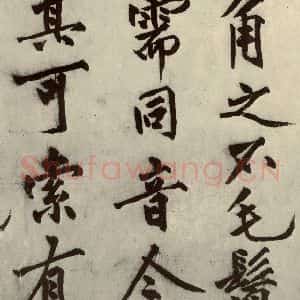 角之不毛
需同音今
其可索有
Shufawang.CN